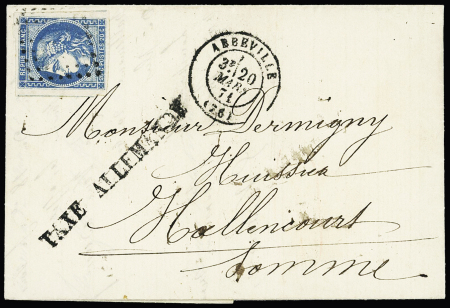 REPUB. FRANC.
ABBEVILLE
20
MARS
71
(76)
TAXE ALLEMANDE
Monsieur Dermigny
Huissier
Hallencourt
Somme